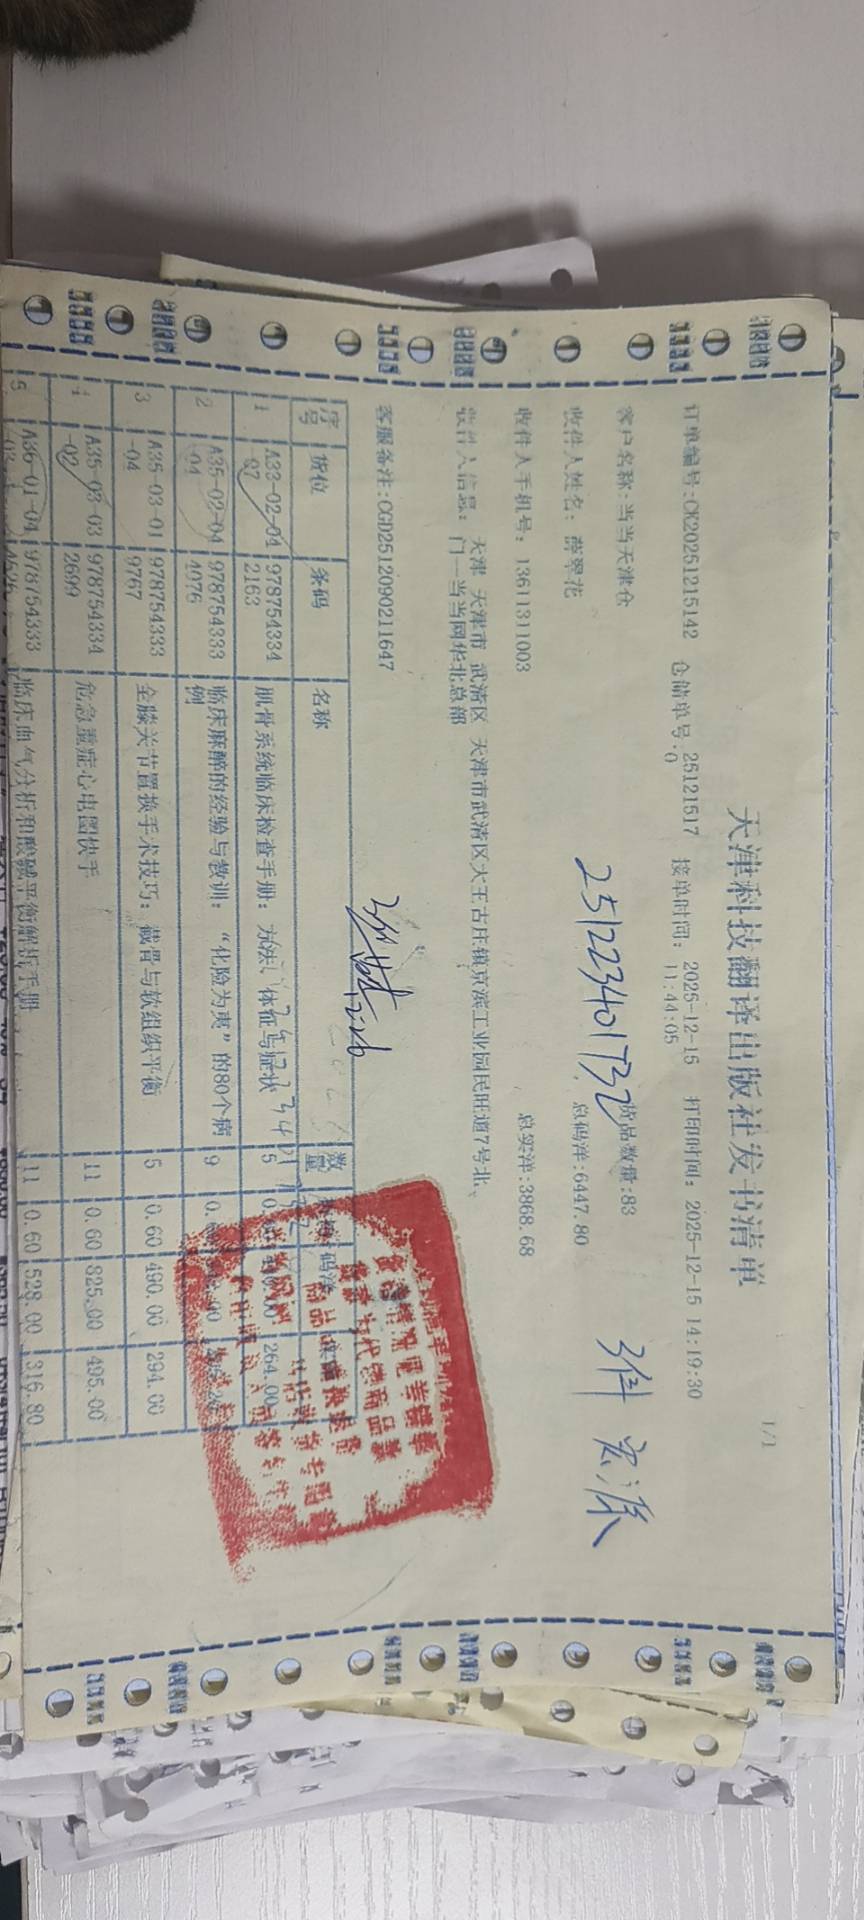 1/1
天津科技翻译出版社发书清单
订单编号:CK20251215142 仓储单号:251215170 接单时间: 2025-12-15 11:44:05 打印时间: 2025-12-15 14:19:30
客户名称:当当天津仓 货品数量:83
收件人姓名: 薛翠花 总码洋:6447.80
251223401732
收件人手机号: 13611311003 总实洋:3868.68
收件人信息: 天津 天津市 武清区 天津市武清区大王古庄镇京滨工业园民旺道7号北
门一当当网华北总部
客服备注:CGD2512090211647
序号 货位 条码 名称 数量 码洋
1 A33-02-04-07 9787543342163 肌骨系统临床检查手册: 方法、体征与症状 5 264.00
2 A35-02-04-04 9787543334076 临床麻醉的经验与教训: “化险为夷”的80个病例 9
3 A35-03-01-04 9787543339767 全膝关节置换手术技巧: 截骨与软组织平衡 5 0.60 490.00 294.00
4 A35-03-03-02 9787543342699 危急重症心电图快手 11 0.60 825.00 495.00
5 A36-01-04 978754333 临床血气分析和酸碱平衡解析手册 11 0.60 528.00 316.80